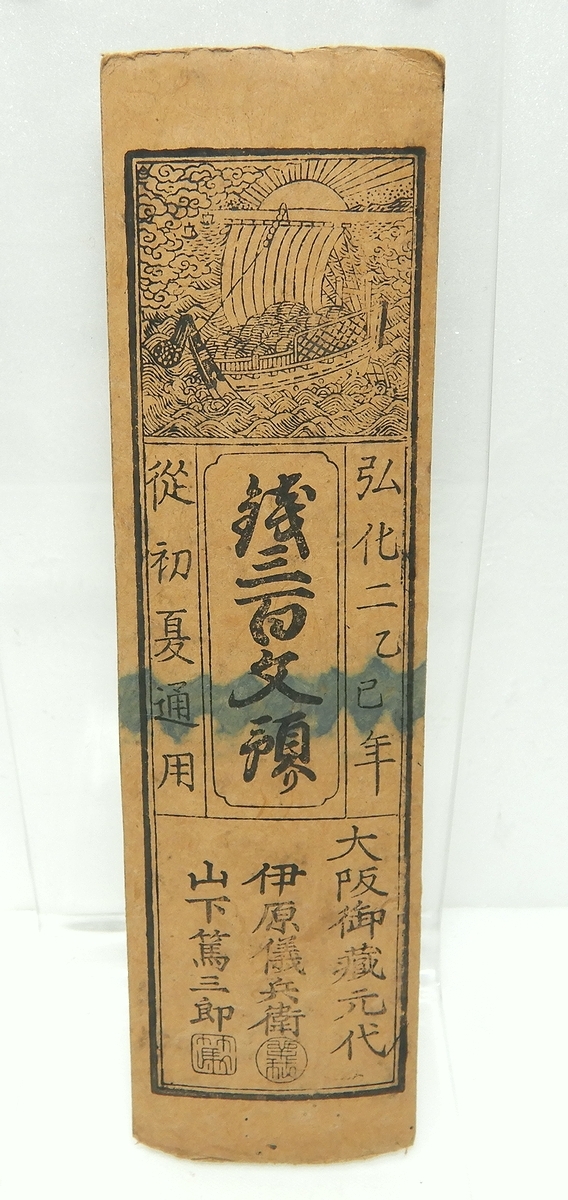 弘化二乙巳年
錢三百文預り
從初夏通用
大阪御藏元代
伊原儀兵衛
山下篤三郎